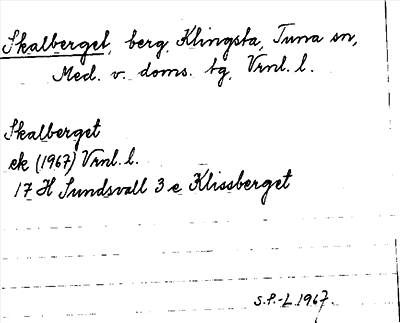 Skalberget, berg Klingsta, Tuna sn,
Med. v. doms. tg, Vrnl. l.
Skalberget
ek (1967) Vrnl. l.
17 H Sundsvall 3 e Klissberget
S.P.-L 1967.